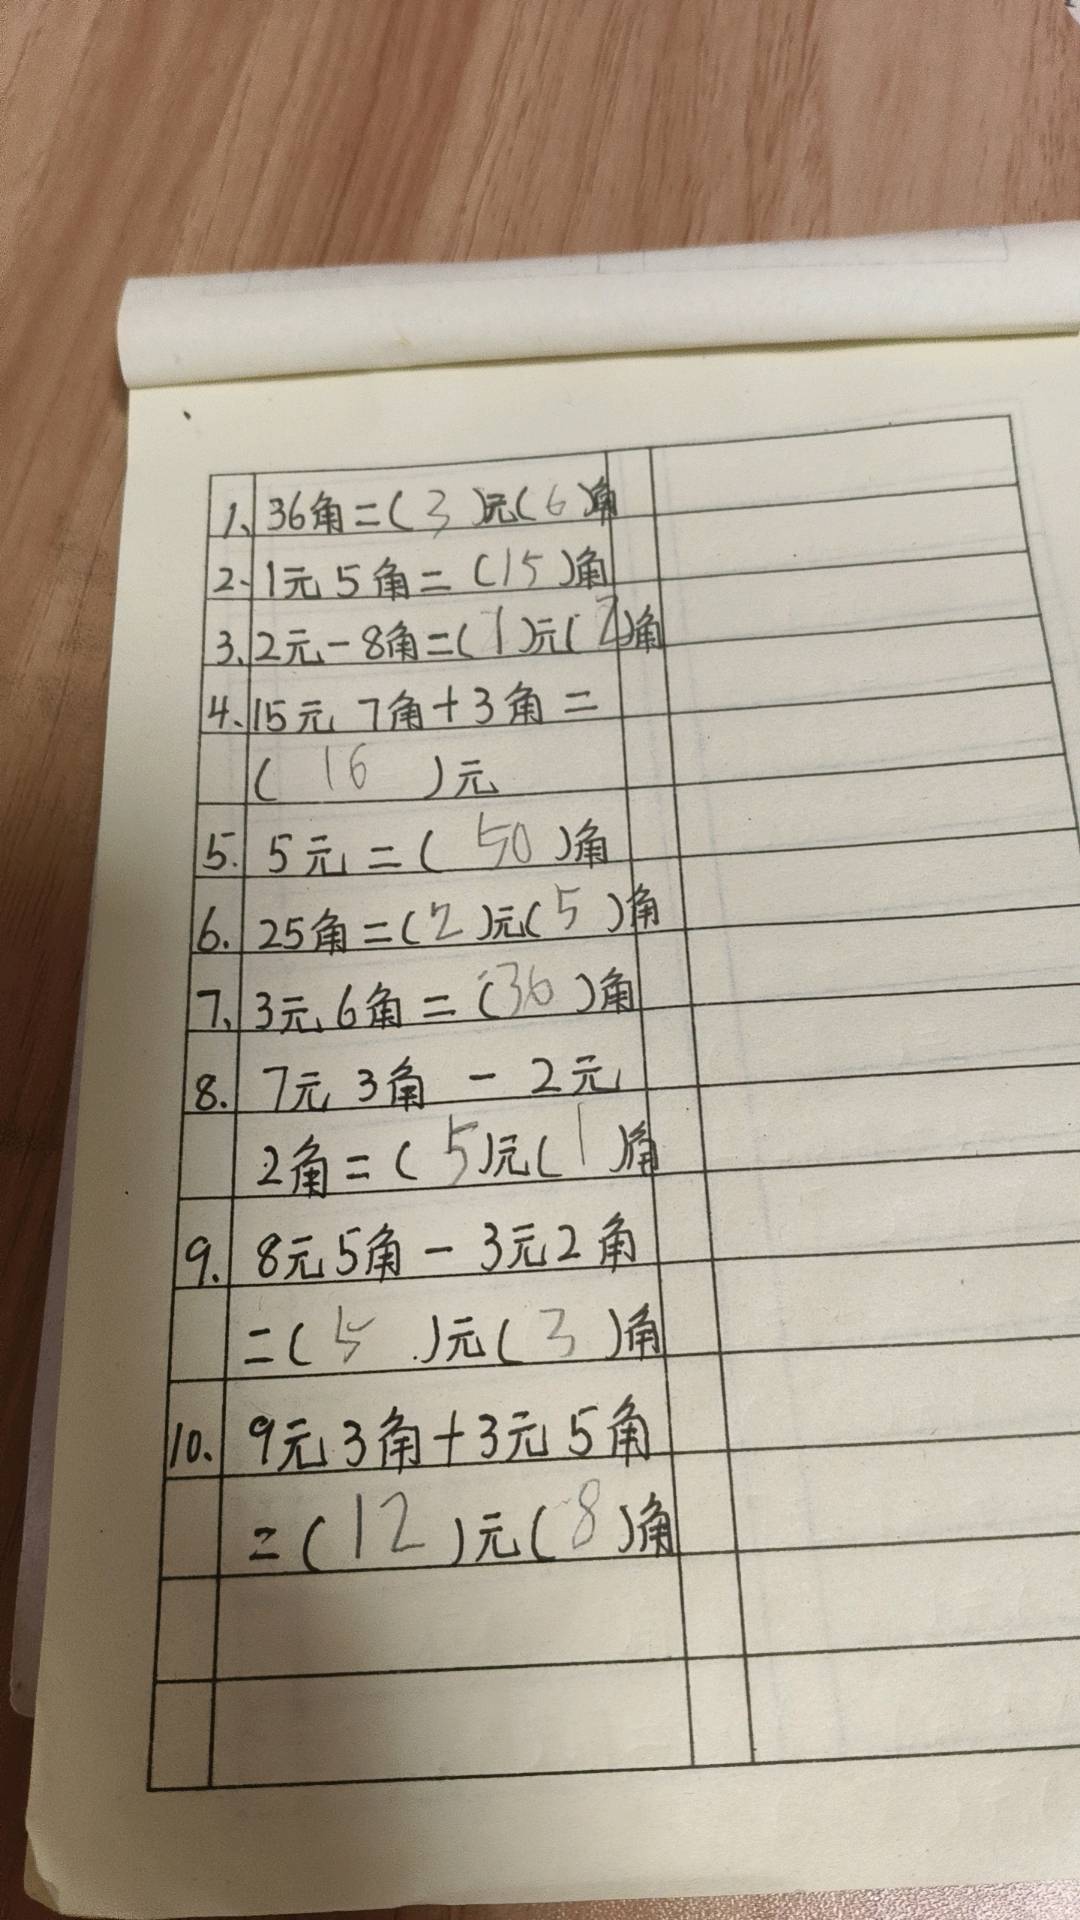 1、36角=(3)元(6)角
2、1元5角=(15)角
3、2元-8角=(1)元(2)角
4、15元7角+3角=
(16)元
5.5元=(50)角
6.25角=(2)元(5)角
7、3元6角=(36)角
8.7元3角-2元
2角=(5)元(1)角
9.8元5角-3元2角
=(5)元(3)角
10.9元3角+3元5角
=(12)元(8)角